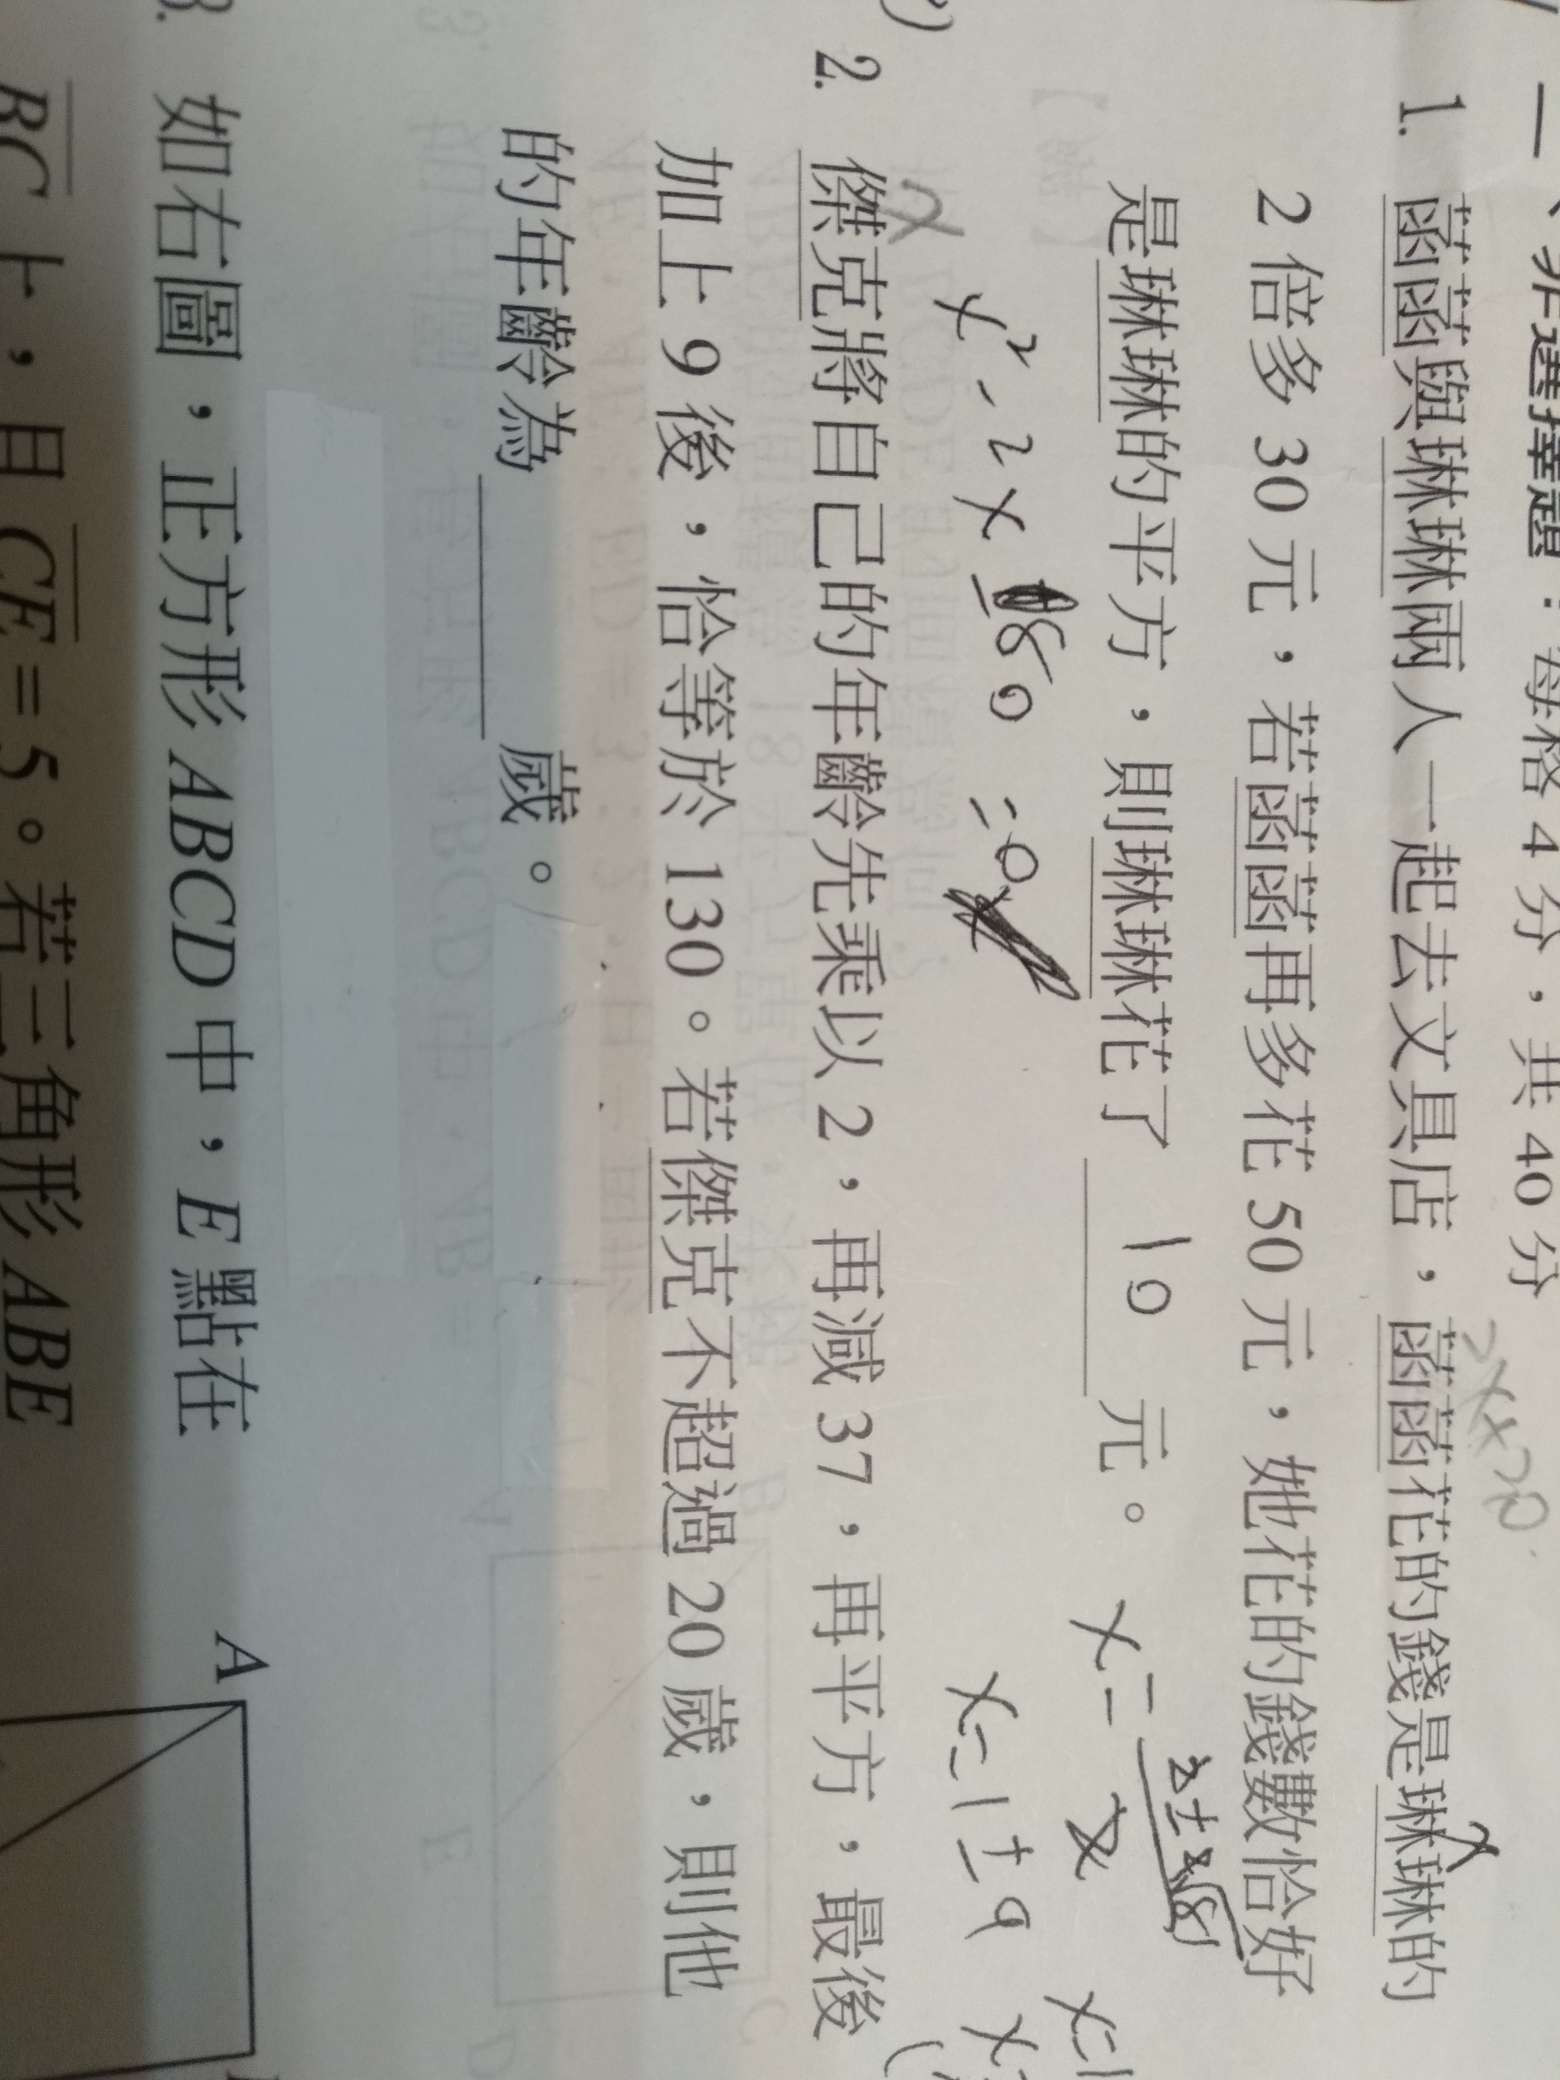 一、非選擇題：每格 4 分，共 40 分
1. 菡菡與琳琳兩人一起去文具店，菡菡花的錢是琳琳的
x
2 倍多 30 元，若菡菡再多花 50 元，她花的錢數恰好
是琳琳的平方，則琳琳花了 10 元。
x² - 2x - 80 = 0
x = 1 ± 9
2. 傑克將自己的年齡先乘以 2，再減 37，再平方，最後
加上 9 後，恰等於 130。若傑克不超過 20 歲，則他
的年齡為 歲。
3. 如右圖，正方形 ABCD 中，E 點在
A
BC 上，且 CE = 5。若三角形 ABE